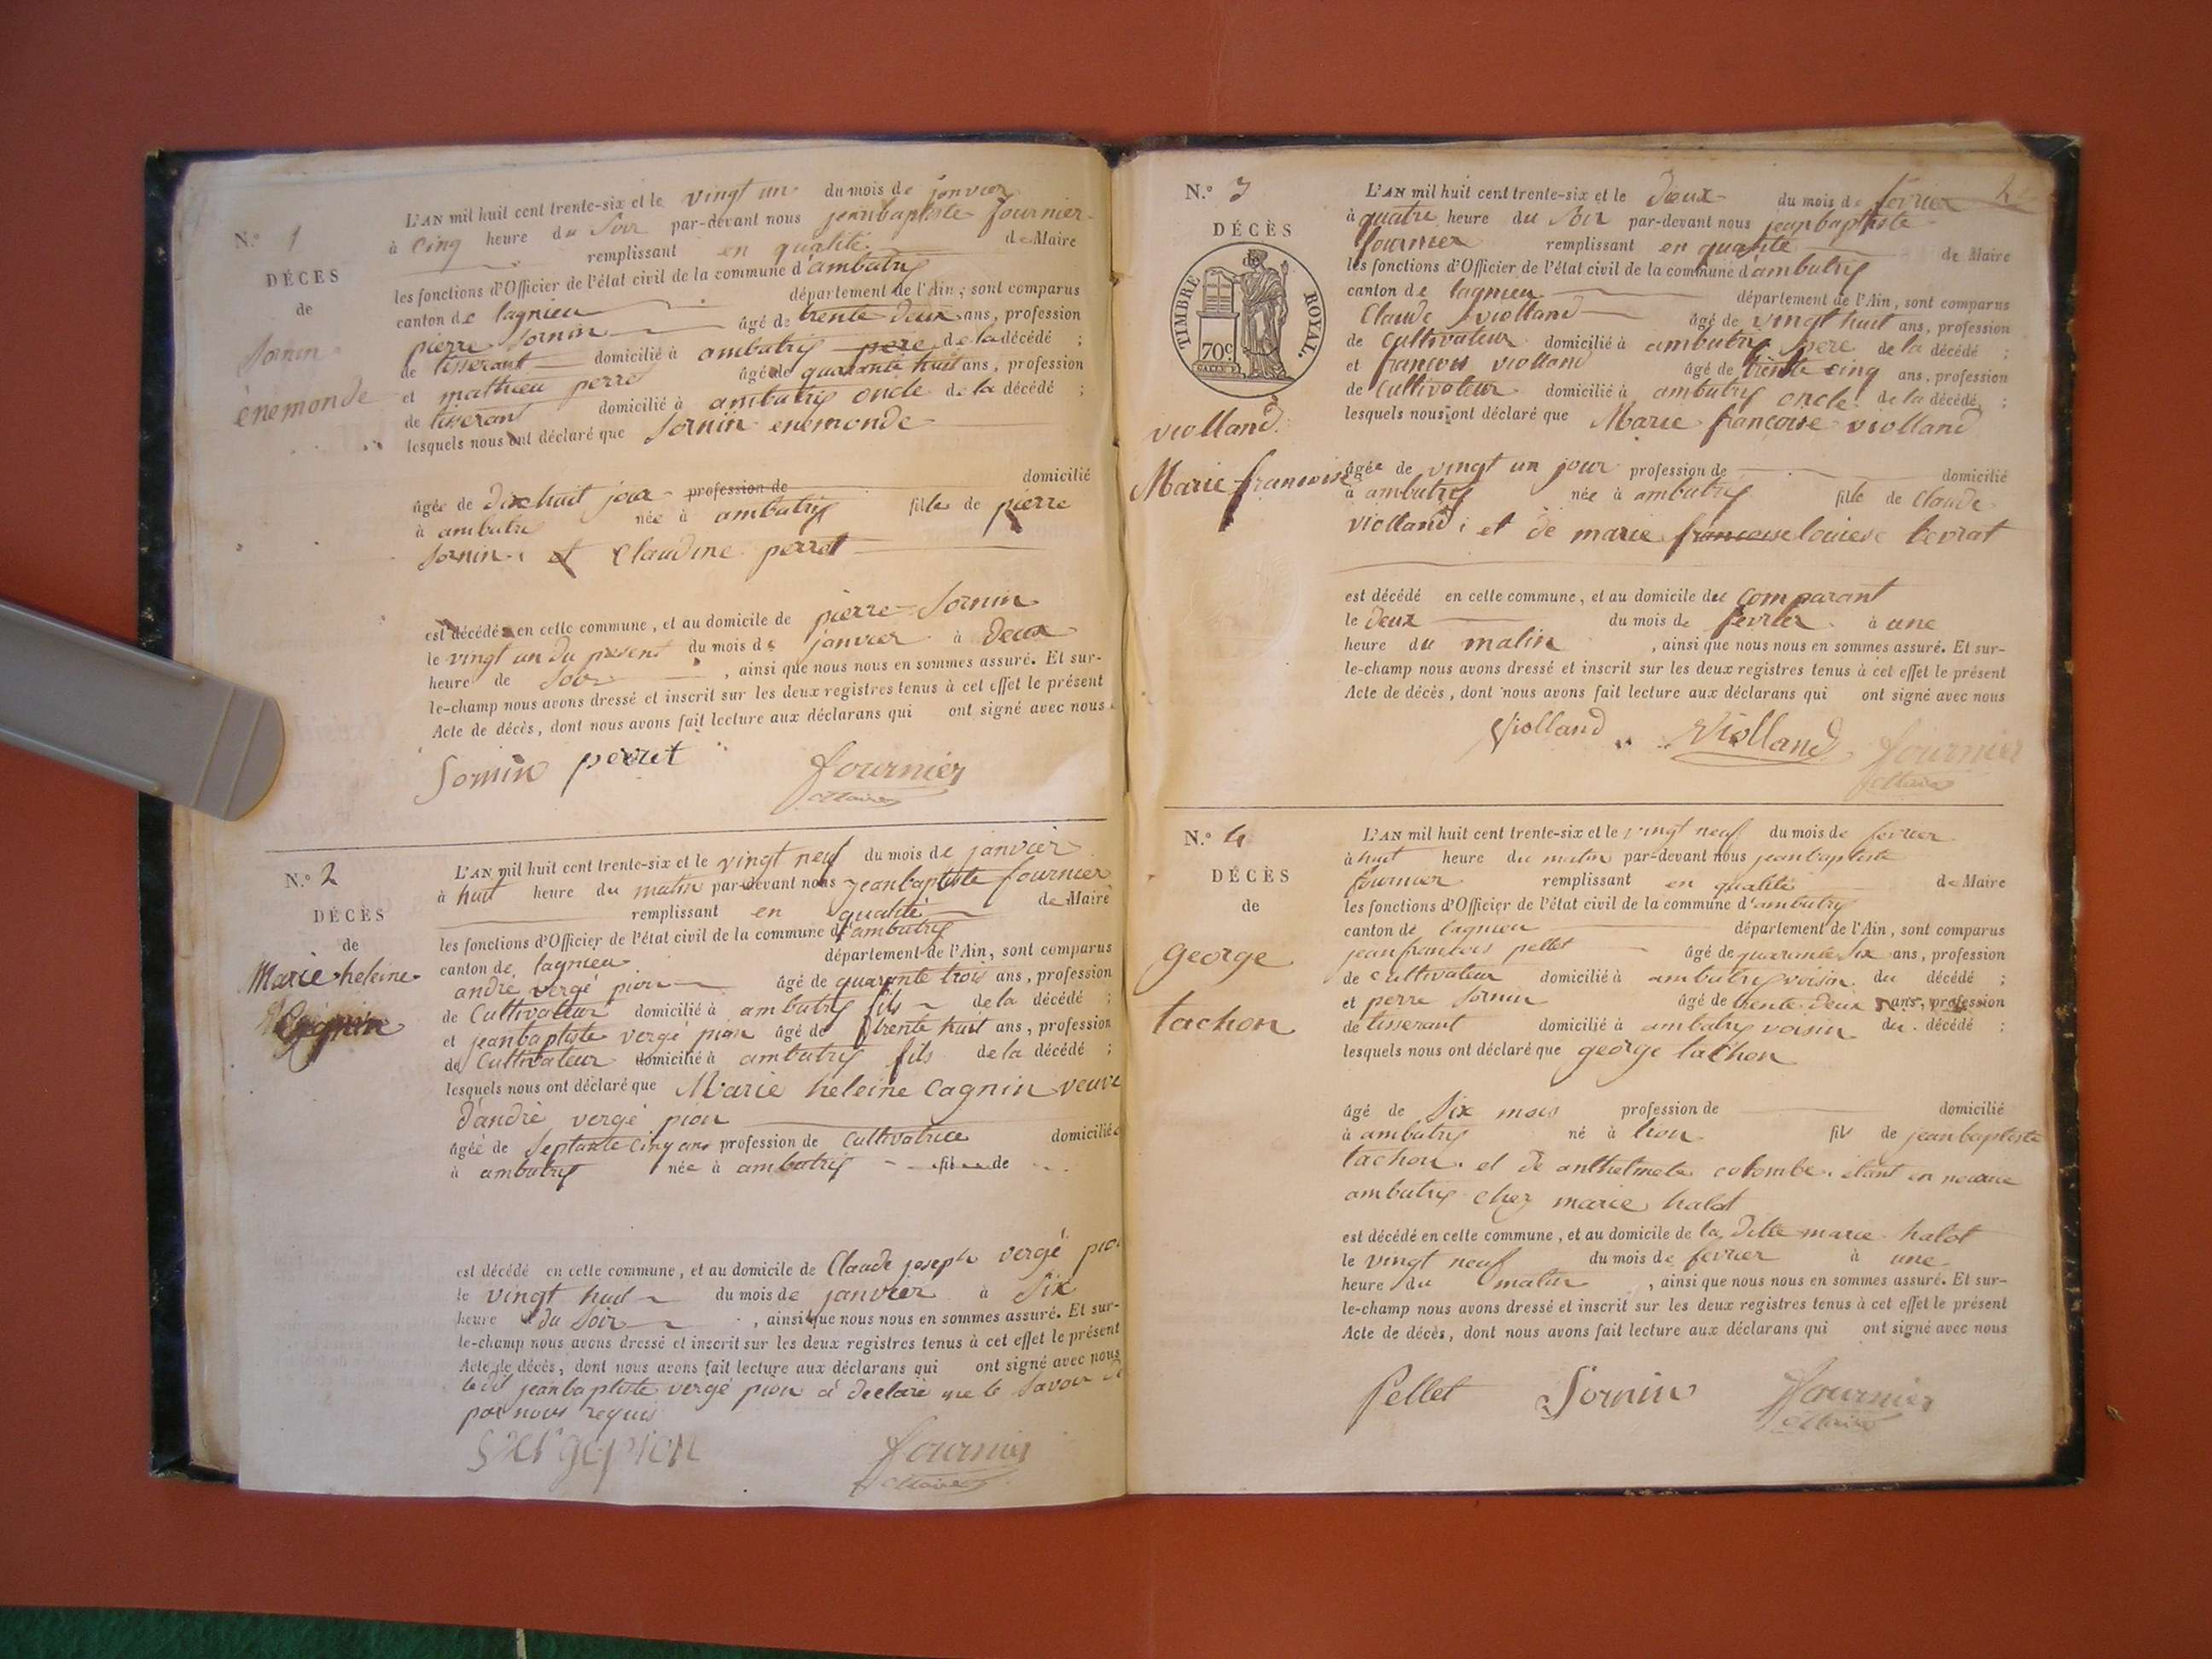 N.º 1
DÉCÈS
de
Sornin
ènemonde
L'AN mil huit cent trente-six et le vingt un du mois de janvier
à Cinq heure du Soir par-devant nous jeanbaptiste fournier
remplissant en qualité de Maire
les fonctions d'Officier de l'état civil de la commune d'ambutrix
canton de lagnieu département de l'Ain, sont comparus
pierre Sornin âgé de trente deux ans, profession
de tisserant domicilié à ambutrix pere de la décédé ;
et mathieu perret âgé de quarante huit ans, profession
de tisserant domicilié à ambutrix oncle de la décédé ;
lesquels nous ont déclaré que Sornin enemonde
âgée de Dixhuit jour profession de domicilié
à ambutrix née à ambutrix fille de pierre
Sornin et Claudine perret
est décédé en cette commune, et au domicile de pierre Sornin
le vingt un du présent du mois de janvier à Deux
heure de Soir , ainsi que nous nous en sommes assuré. Et sur-
le-champ nous avons dressé et inscrit sur les deux registres tenus à cet effet le présent
Acte de décès, dont nous avons fait lecture aux déclarans qui ont signé avec nous
Sornin perret fournier
Maire
N.º 2
DÉCÈS
de
Marie heleine
Cagnin
L'AN mil huit cent trente-six et le vingt neuf du mois de janvier
à huit heure du matin par-devant nous jeanbaptiste fournier
remplissant en qualité de Maire
les fonctions d'Officier de l'état civil de la commune d'ambutrix
canton de lagnieu département de l'Ain, sont comparus
andré vergé pion âgé de quarante trois ans, profession
de Cultivateur domicilié à ambutrix fils de la décédé ;
et jeanbaptiste vergé pion âgé de trente huit ans, profession
de Cultivateur domicilié à ambutrix fils de la décédé ;
lesquels nous ont déclaré que Marie heleine Cagnin veuve
d'andré vergé pion
âgée de Septante Cinq ans profession de Cultivatrice domicilié
à ambutrix née à ambutrix fil de
est décédé en cette commune, et au domicile de Claude joseph vergé pion
le vingt huit du mois de janvier à Six
heure du Soir , ainsi que nous nous en sommes assuré. Et sur-
le-champ nous avons dressé et inscrit sur les deux registres tenus à cet effet le présent
Acte de décès, dont nous avons fait lecture aux déclarans qui ont signé avec nous
ledit jeanbaptiste vergé pion a declaré ne le Savoir de
par nous requis
vergepion fournier
Maire
N.º 3
DÉCÈS
de
TIMBRE ROYAL.
70c.
violland
Marie francoise
L'AN mil huit cent trente-six et le Deux du mois de fevrier 2
à quatre heure du Soir par-devant nous jeanbaptiste
fournier remplissant en qualité de Maire
les fonctions d'Officier de l'état civil de la commune d'ambutrix
canton de lagnieu département de l'Ain, sont comparus
Claude violland âgé de vingt huit ans, profession
de Cultivateur domicilié à ambutrix pere de la décédé ;
et francois violland âgé de trente cinq ans, profession
de Cultivateur domicilié à ambutrix oncle de la décédé ;
lesquels nous ont déclaré que Marie francoise violland
âgée de vingt un jour profession de domicilié
à ambutrix née à ambutrix fille de Claude
violland et de marie francoise louiese
est décédé en cette commune, et au domicile du Comparant
le Deux du mois de fevrier à une
heure du matin , ainsi que nous nous en sommes assuré. Et sur-
le-champ nous avons dressé et inscrit sur les deux registres tenus à cet effet le présent
Acte de décès, dont nous avons fait lecture aux déclarans qui ont signé avec nous
Violland Violland fournier
Maire
N.º 4
DÉCÈS
de
george
tachon
L'AN mil huit cent trente-six et le vingt neuf du mois de fevrier
à huit heure du matin par-devant nous jeanbaptiste
fournier remplissant en qualité de Maire
les fonctions d'Officier de l'état civil de la commune d'ambutrix
canton de lagnieu département de l'Ain, sont comparus
jeanfrancois pellet âgé de quarante Six ans, profession
de Cultivateur domicilié à ambutrix voisin du décédé ;
et pierre Sornin âgé de trente deux ans, profession
de tisserant domicilié à ambutrix voisin du décédé ;
lesquels nous ont déclaré que george tachon
âgé de Six mois profession de domicilié
à ambutrix né à lion fils de jeanbaptiste
tachon et de anthelmete colombe etant en nourice
ambutrix chez marie halot
est décédé en cette commune, et au domicile de la dille marie halot
le vingt neuf du mois de fevrier à une
heure du matin , ainsi que nous nous en sommes assuré. Et sur-
le-champ nous avons dressé et inscrit sur les deux registres tenus à cet effet le présent
Acte de décès, dont nous avons fait lecture aux déclarans qui ont signé avec nous
Pellet Sornin fournier
Maire